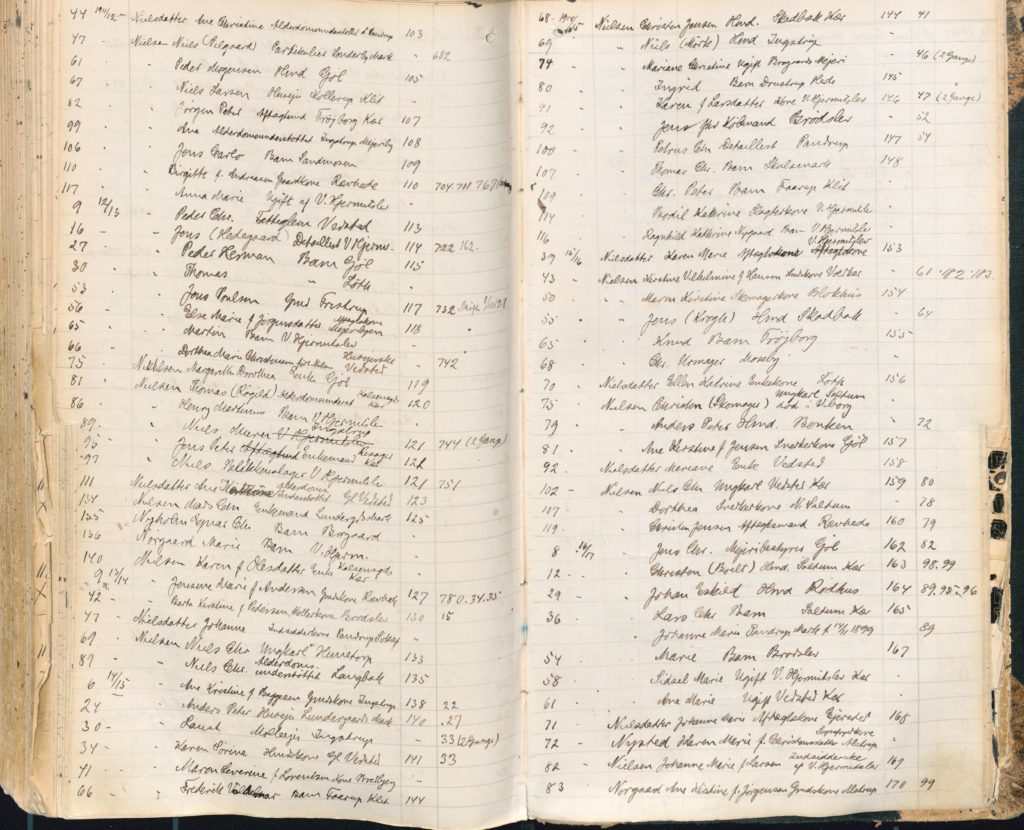 44 1911/12 - Nielsdatter Ane Christine Alderdomsunderstøttet Pandrup 103
47 - Nielsen Niels (Pilgaard) Partikulier Sønderby Mark - 682
61 Peder Mogensen Hmd Gjøl 105
67 Niels Larsen Husejer Kollerup Klit
82 Jørgen Peter Aftægtsmd Trøjborg Kær 107
99 Ane Alderdomsunderstøttet Ingstrup Mejeriby 108
106 Jens Carlo Barn Sandmosen 109
110 Birgitte f. Andreasen Gaardkone Rævhede 110 704. 701. 767
117 Anna Marie Ugift af V. Hjermitslev
9 12/13 Peder Chr. Fattiglem Vedsted 113
16 - Jens (Hedegaard) Detaillist V Hjerm. 114 722 162.
27 Peder Herman Barn Gjøl 115
30 Thomas " Løth
53 Jens Poulsen Gmd Fristrup 117 732
56 Else Marie f. Jørgensdatter Aftægtskone Mejerbyen 118
65 Martin Barn V. Hjermitslev
66 Dorthea Marie Christensen Vedsted - 742
75 Nikkelsen Margrethe Dorothea Enke Gjøl 119
81 Nielsen Thomas (Røgild) Alderdomsunderst. Kær 120
86 Henry Martinus Barn V. Hjermitslev
89. Niels Murer V Hjermitslev Ingstrup 121 744 (2 Gange)
95 Jens Peter Aftægtsmd Enkemand Kær 121
97 Niels Blikkenslager V. Hjermitslev 121 751
111 Nielsdatter Ane Kathrine Alderdoms understøttet Gl Vedsted 123
134 Nielsen Mads Chr. Enkemand Lundergds Mark 125
135 Nyholm Ejnar Chr. Barn Bergaard
136 Nørgaard Marie Barn V. Hjerm.
140 Nielsen Karen f. Olesdatter Enke Kalsensgds Kær
9 13/14 Jensine Marie f. Andersen Gmdkone Rævhede 127 780. 34. 35
42 - Berta Kirstine f. Pedersen Møllerkone Brødslev 130 15
47 - Nielsdatter Johanne Indsidderkone Pandrup
69 Nielsen Niels Chr. Ungkarl Hunetorp 133
87 Niels Chr. Alderdoms. understøttet Langbak 135
6 14/15 Ane Kristine f. Bayssen Gmdkone Ingstrup 138 22
24 Anders Peter Husejer Lundergaards Mark 140 . 27
30 - Laust Mølleejer Ingstrup - 33 (2 Gange)
34 - Karen Sørine Hmdkone Gl. Vedsted 141 33
41 Maren Severine f. Lorentsen Kone Bredbjerg -
66 Frederik Valdemar Barn Faarup Klit 144
68. 1914/15 Nielsen Christen Jensen Hmd. Skadbak Kær 144 41
69 " Niels (Mørk) Hmd Ingstrup
74 Mariane Christine Ugift Bregaards Mejeri 46 (2 Gange)
80 " Ingrid Barn Drustrup Hede 145
91 " Karen f. Larsdatter Kone V. Hjermitslev 146 47 (2 Gange)
92 " Jens fhv Købmand Brødslev - 52
100 " Petrus Chr. Detaillist Pandrup 147 54
107 " Thomas Chr. Barn 148
109 Chr. Peter Barn Faarup Klit
114 Bodil Katherine Slagterkone V. Hjermitslev
116 Dagnhild Katherine Nygaard Barn V Hjermitslev
39 15/16 Nielsdatter Karen Marie Aftægtskone V. Hjermitslev 153
43 - Nielsen Kristine Vilhelmine f. Hansen Hmdkone - 61. 182. 183.
50 " Maren Kristine Skomagerkone Blokhus 154
55 " Jens (Krogh) Hmd Skadbak - 64
65 " Knud Barn Trøjborg 155
68 " Chr. Urmager Moseby
70 - Nielsdatter Ellen Katrine Enkekone Løth 156
75 - Nielsen Christen (Skomager) Ungkarl Saltum død i Viborg
79 " Anders Peter Hmd. Bonken - 72
81 . " Ane Kirstine f. Jensen Snedkerkone Gjøl 157
92 - Nielsdatter Mariane Enke Vedsted 158
102 - Nielsen Niels Chr. Ungkarl Vedsted Kær 159 80
107 " Dorthea Snedkerkone N. Saltum - 78
119 . " Christen Jensen Aftægtsmand Rævhede 160 79
8 16/17 " Jens Chr. Mejeribestyrer Gjøl 162 82
12 - " Christen (Breit) Hmd. Saltum Kær 163 98. 99
29 " Johan Eskild Hmd Rødhus 164 89. 95-96
36 " Lars Chr. Barn Saltum Kær 165
" Johanne Marie Pandrup Mark f. 1899 89
54 " Marie Barn Brødslev 167
58 " Sidsel Marie Ugift V. Hjermitslev Kær
61 " Ane Marie Ugift Vedsted Kær
71 Nielsdatter Johanne Marie Aftægtskone Ejersted 168
72 - Nysted Karen Marie f. Christensdatter Alstrup
82 - Nielsen Johanne Marie f. Larsen Indsidderske af V. Hjermitslev 169
83 Nørgaard Ane Kirstine f. Jørgensen Gmdskone Alstrup 170 99